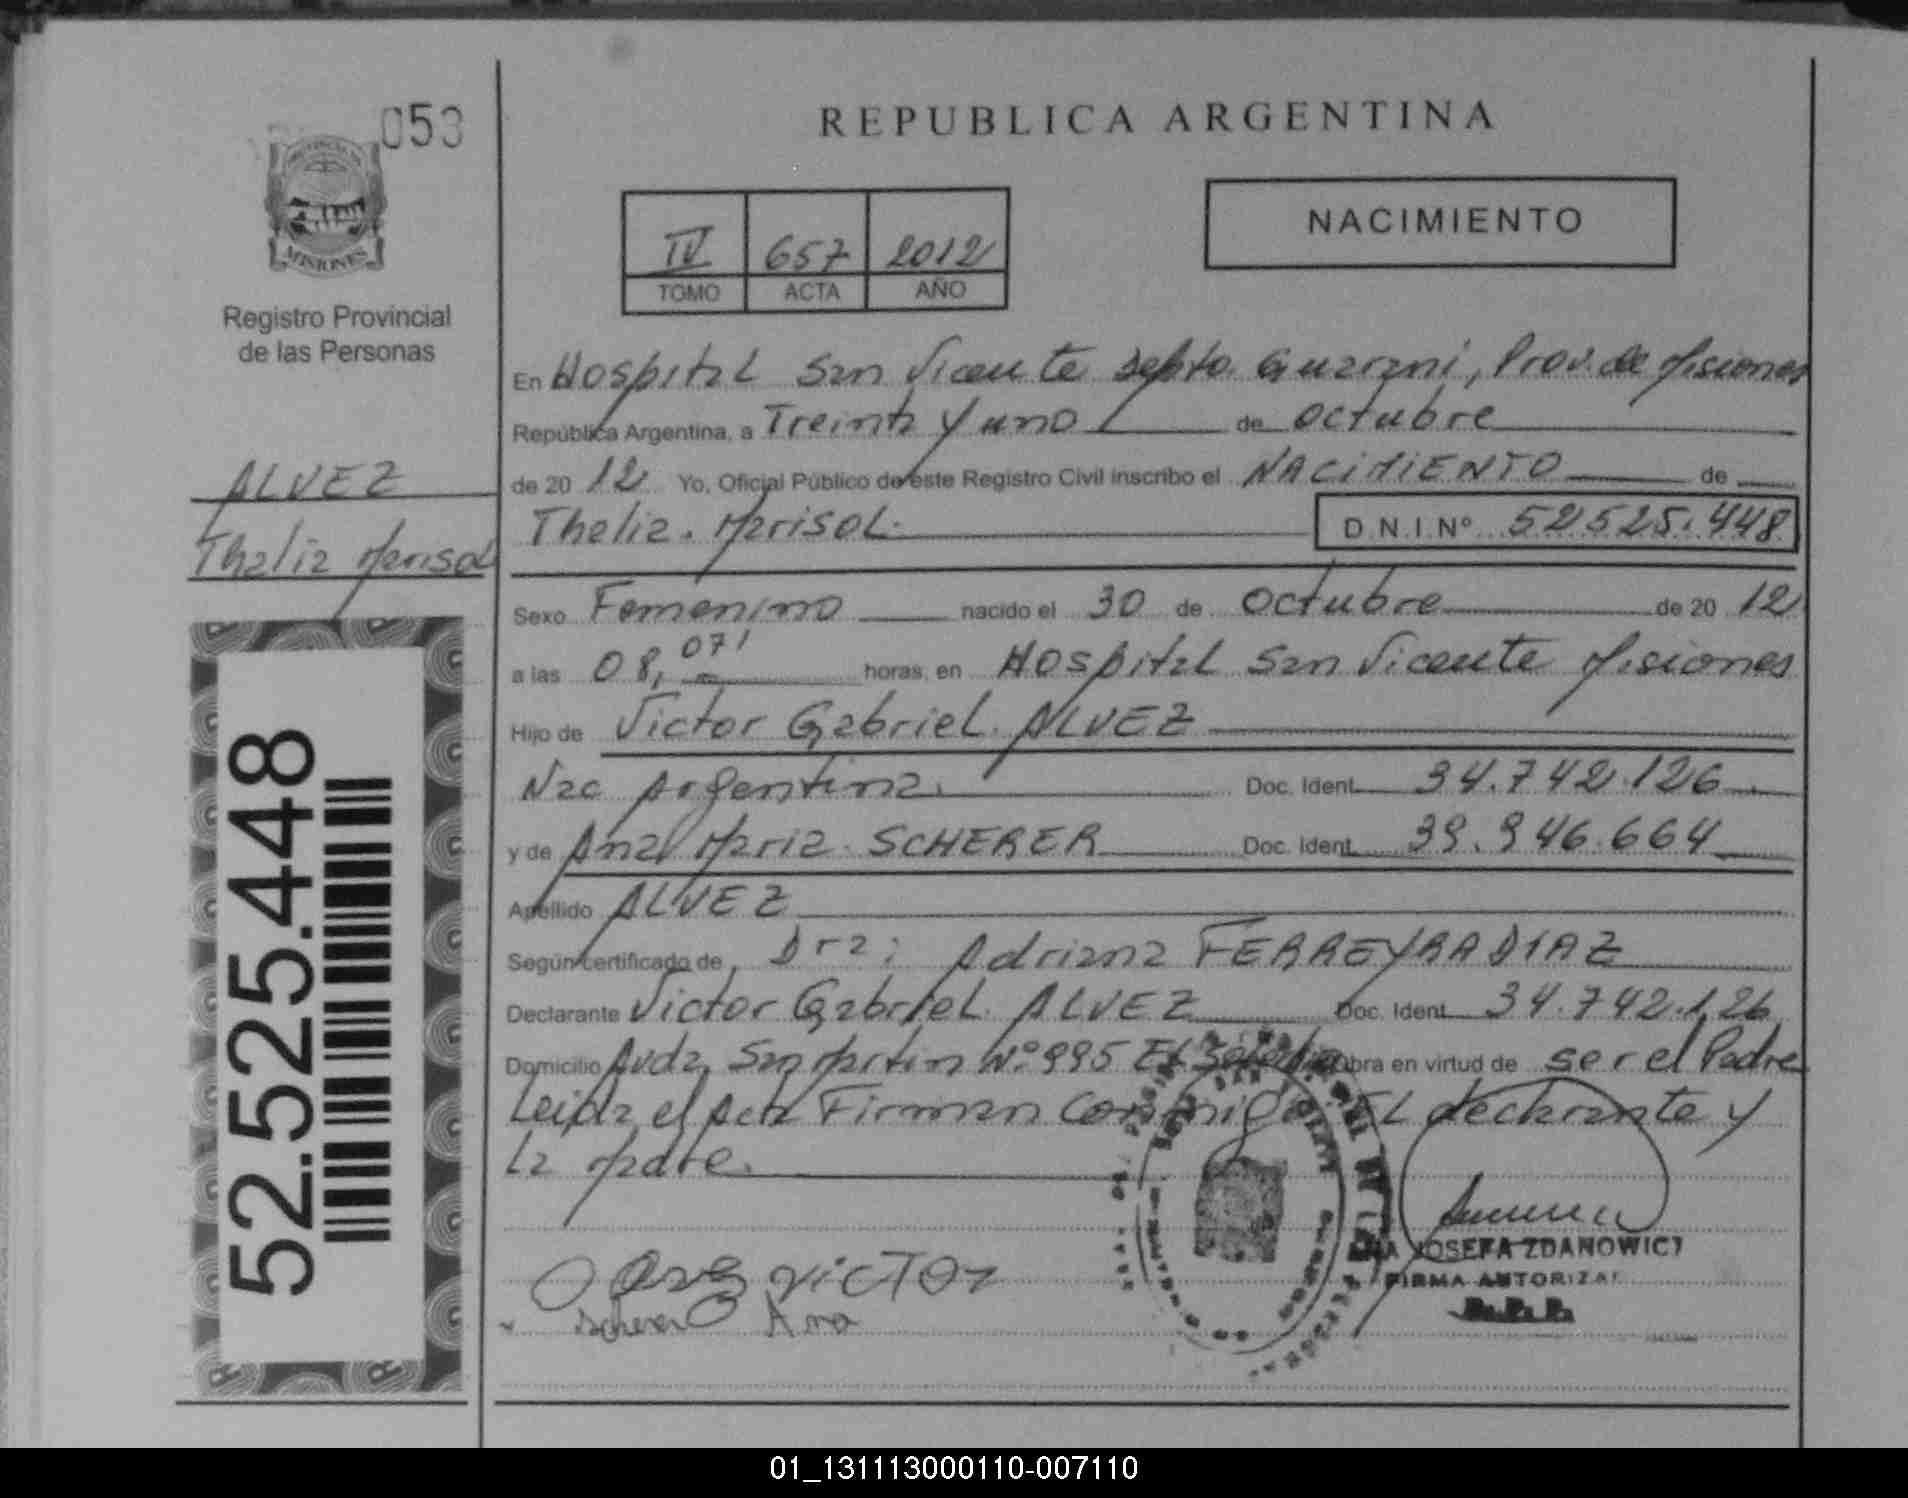 053
PROVINCIA DE
MISIONES
Registro Provincial
de las Personas
ALVEZ
Thalia Marisol
52.525.448
REPUBLICA ARGENTINA
IV 657 2012
TOMO ACTA AÑO
NACIMIENTO
En Hospital San Vicente Depto. Guarani, Prov. de Misiones
República Argentina, a Treinta y uno de octubre
de 2012 Yo, Oficial Público de este Registro Civil inscribo el NACIMIENTO de
Thalia. Marisol. D.N.I.Nº 52.525.448
Sexo Femenino nacido el 30 de Octubre de 2012
a las 08,07' horas, en Hospital San Vicente Misiones
Hijo de Victor Gabriel. ALVEZ
Nac Argentina. Doc. Ident. 34.742.126
y de Ana Maria. SCHERER Doc. Ident. 39.946.664
Apellido ALVEZ
Según certificado de Dra: Adriana FERREYRA DIAZ
Declarante Victor Gabriel. ALVEZ Doc. Ident. 34.742.126
Domicilio Avda. San Martin Nº 995 El Soberbio Obra en virtud de ser el Padre
Leida el Acta Firman Conmigo El declarante y
La Madre.
VICTOR
scherer Ana
ANA JOSEFA ZDANOWICZ
FIRMA AUTORIZA
01_131113000110-007110